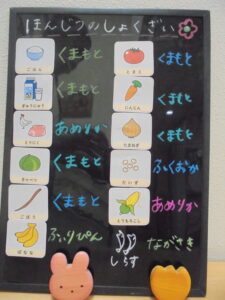 ほんじつのしょくざい
ごはん くまもと
とまと くまもと
ぎゅうにゅう くまもと
にんじん くまもと
とりにく あめりか
たまねぎ くまもと
きゃべつ くまもと
だいず ふくおか
ごぼう くまもと
とうもろこし あめりか
ばなな ふぃりぴん
しらす ながさき